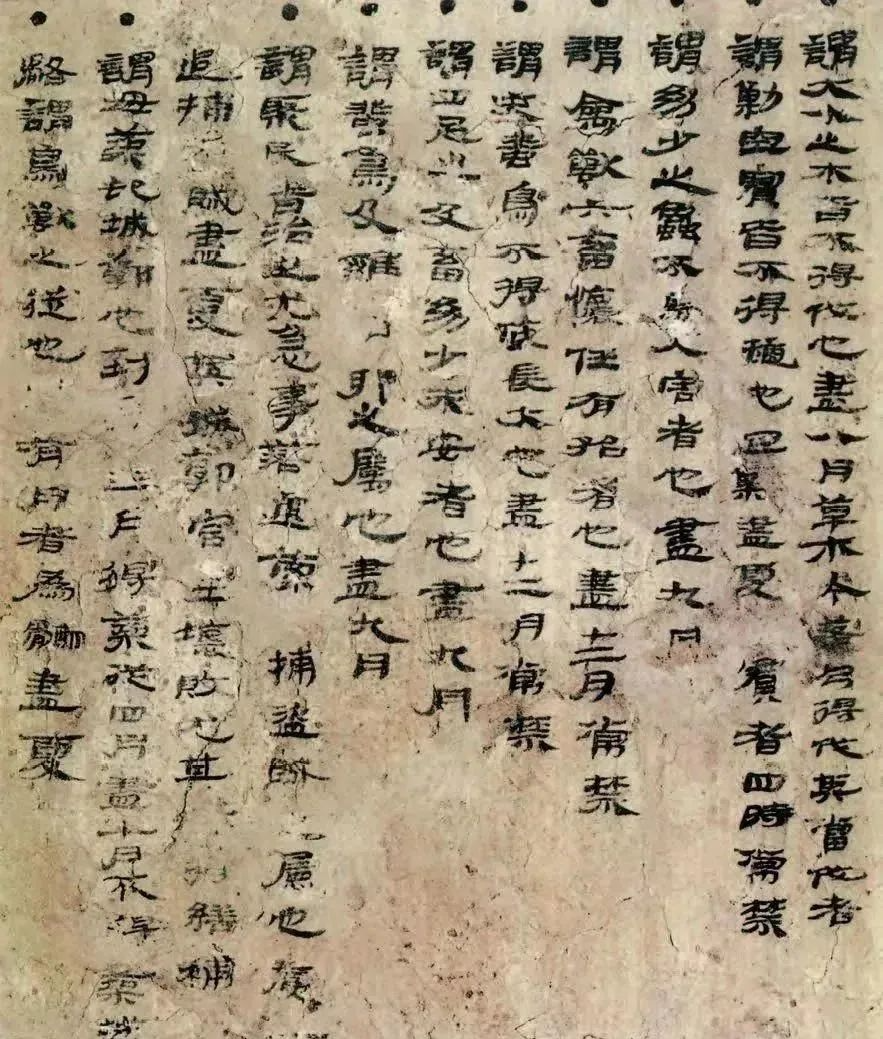 謂大小之木皆不得伐也盡八月草木令落乃得伐其當伐者
謂勦空實皆不得擿也空勦盡夏實者四時常禁
謂幼少之蟲不為人害者也盡九月
謂禽獸六畜懷任有胎者也盡十二月常禁
謂夭蜚鳥不得使長大也盡十二月常禁
謂四足及畜幼少未安者也盡九月
謂蜚鳥及雞卵之屬也盡九月
謂聚民繕治也尤急事若追索捕盜賊之屬也
追捕盜賊盡夏其城郭宮室壞敗尤甚繕補
謂毋築起城郭也三月得築從四月盡七月不得築城
骼謂鳥獸之也有肉者為骴盡夏